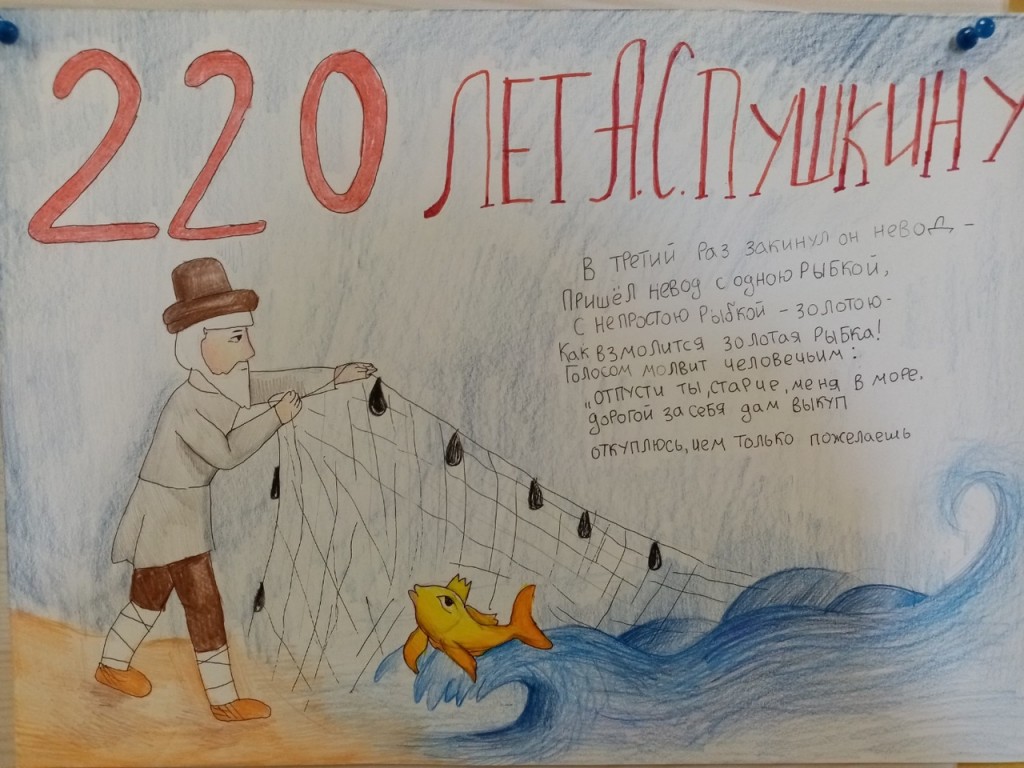 220 ЛЕТ А.С.ПУШКИНУ
В третий раз закинул он невод –
Пришёл невод с одною рыбкой,
С непростою рыбкой – золотою-
Как взмолится золотая рыбка!
Голосом молвит человечьим:
„отпусти ты, старче, меня в море.
дорогой за себя дам выкуп
откуплюсь, чем только пожелаешь